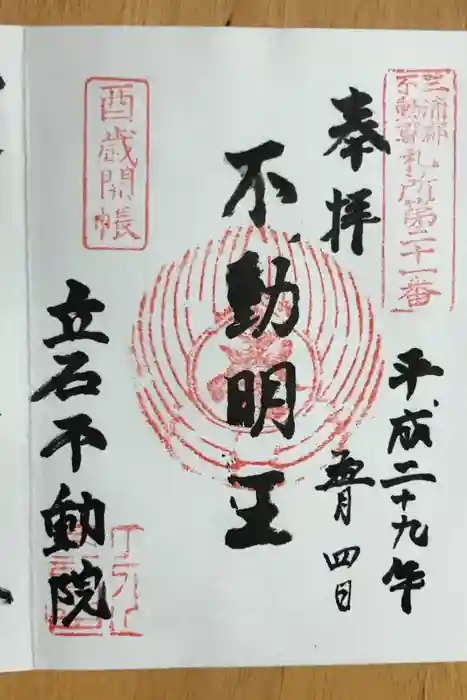 三浦郡
不動尊札所第二十一番
奉拝
平成二十九年
五月四日
不動明王
酉歳開帳
立石不動院